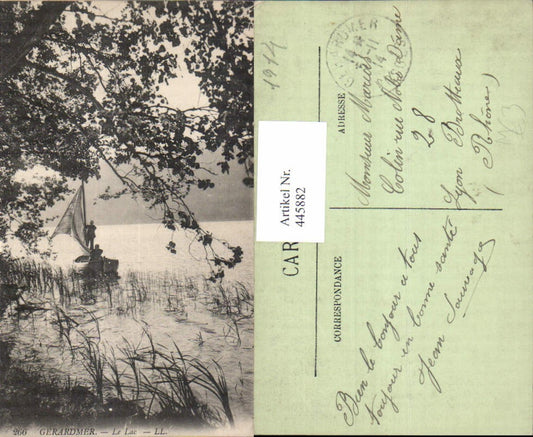 266 GÉRARDMER. — Le Lac — LL.
1914
Artikel Nr.
445882
CAR
ADRESSE
Monsieur Marius
Colin rue Notre Dame
28
Lyon Brotteaux
(Rhône)
CORRESPONDANCE
Bien le bonjour a tous
toujour en bonne santé
Jean Sauvage